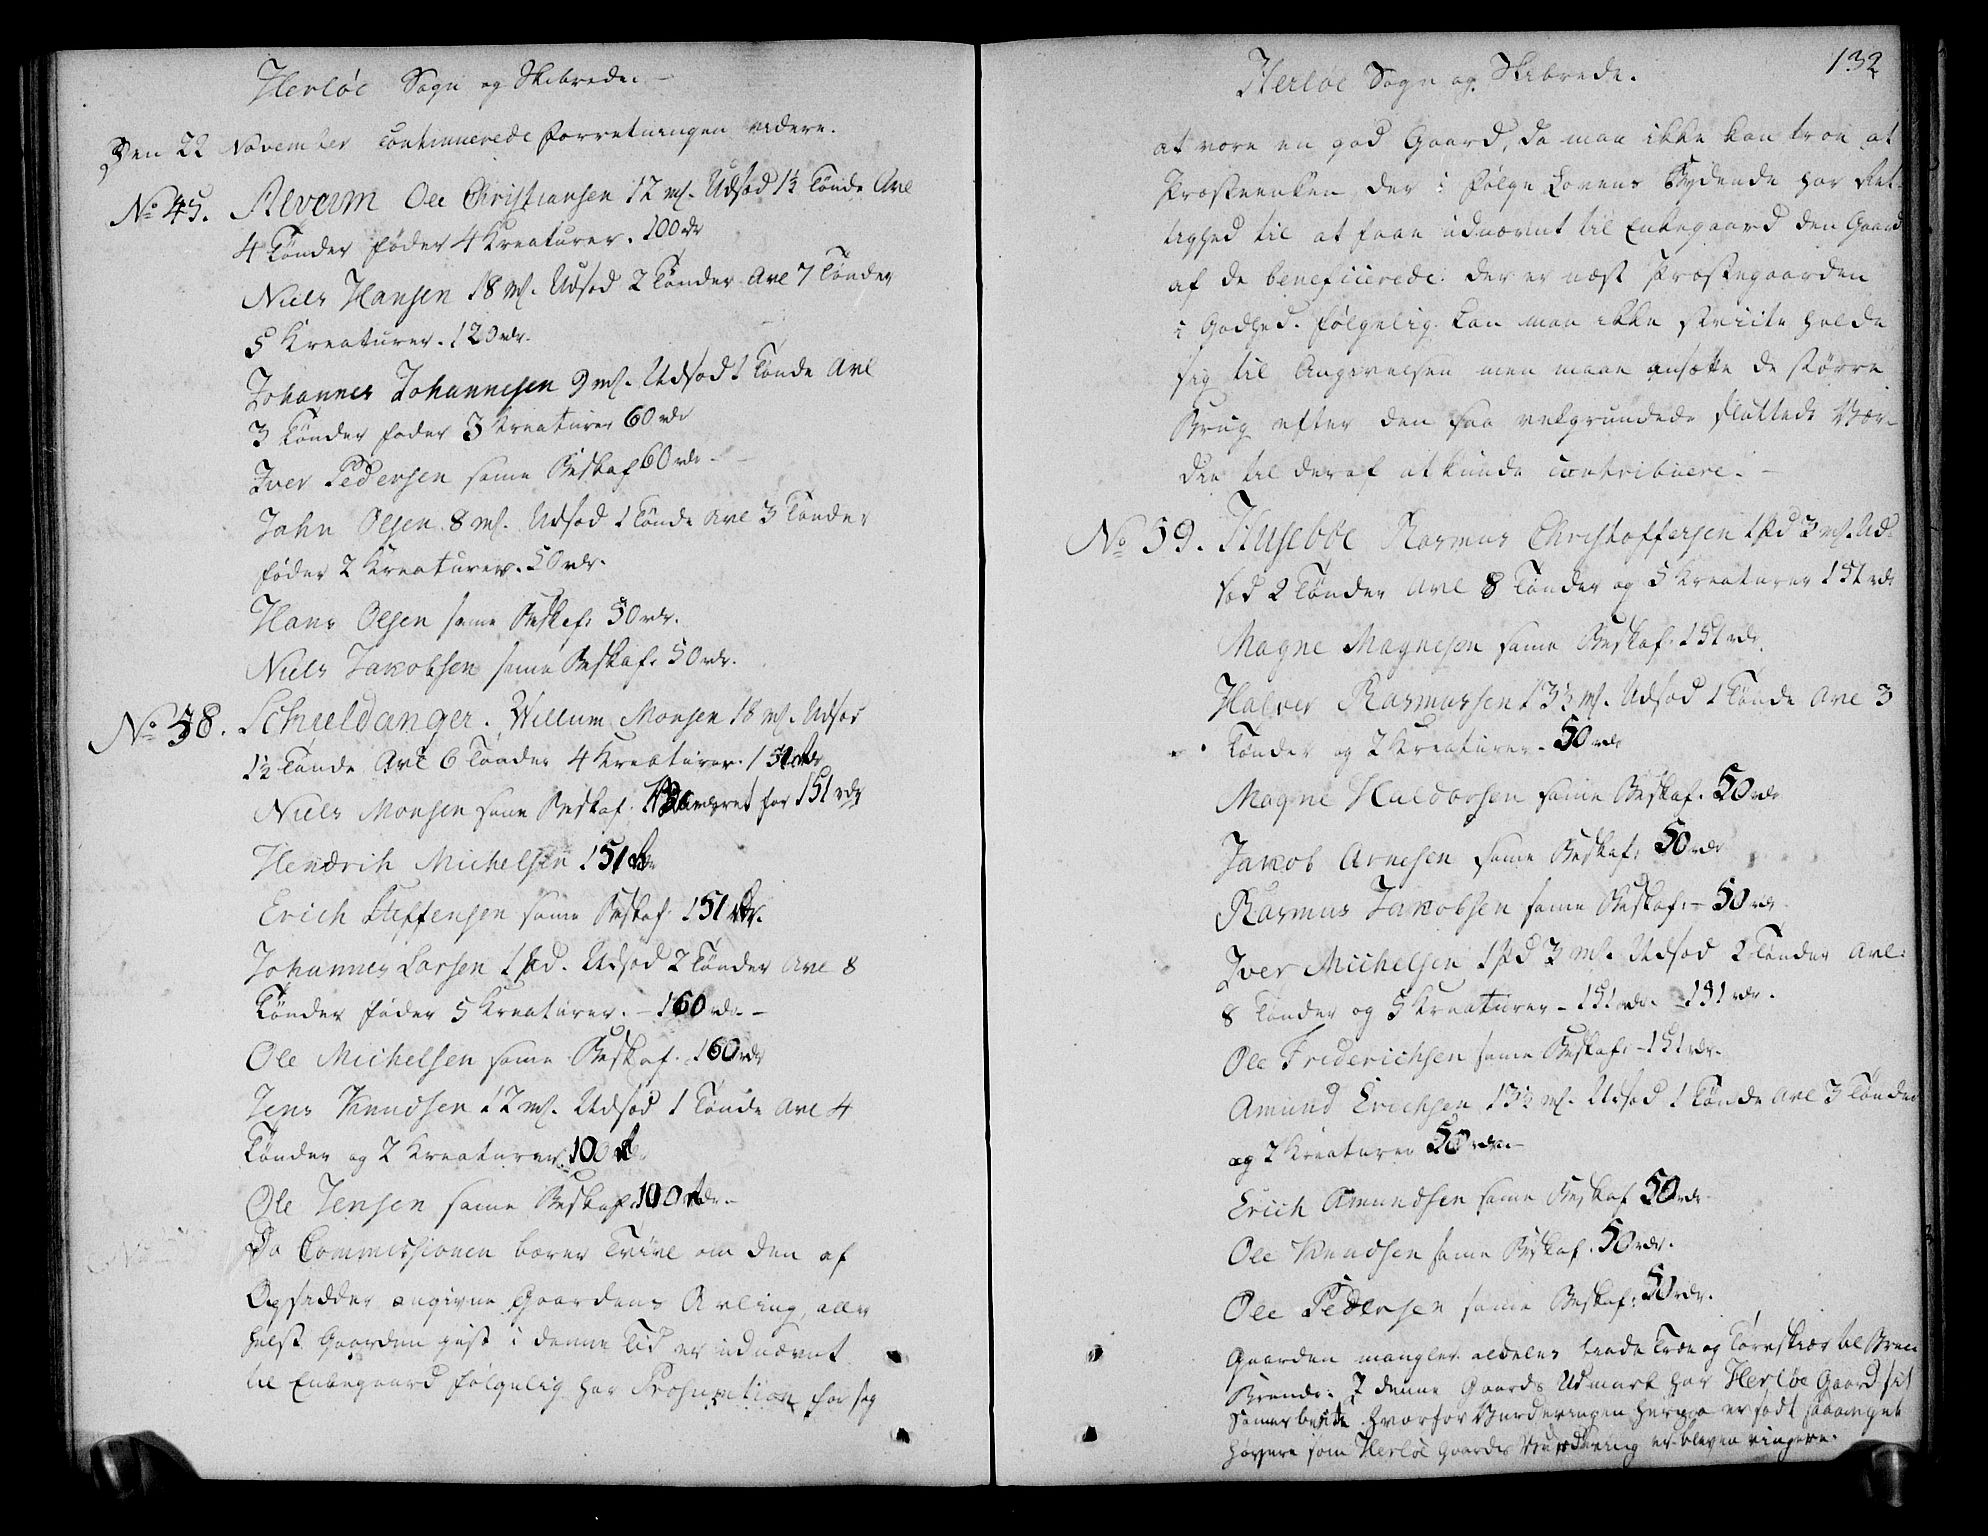 Herløe Sogn og Skibrede.
Den 22 November continuerede forretningen videre.
No 45. Alverm Ole Christiansen 12 mk. Udsød 1½ Tønde Avl
4 Tønder føder 4 Kreaturer. 100 rdr
Niels Hansen 18 mk. Udsød 2 Tønder Avl 7 Tønder
5 Kreaturer. 120 rdr.
Johannes Johannesen 9 mk. Udsød 1 Tønde Avl
3 Tønder føder 3 Kreaturer 60 rdr
Iver Pedersen same Beskaf 60 rdr.
John Olsen 8 mk. Udsød 1 Tønde Avl 3 Tønder
føder 2 Kreaturer. 50 rdr.
Hans Olsen same Beskaf: 50 rdr.
Niels Jakobsen same Beskaf. 50 rdr.
No 58. Schieldanger. Willum Monsen 18 mk. Udsød
1½ Tønde Avl 6 Tønder 4 Kreaturer. 151 rdr
Niels Monsen same Beskaf. for 151 rdr
Hendrik Michelsen 151 rdr
Erich Steffensen same Beskaf. 151 rdr.
Johannes Larsen 1 pd. Udsød 2 Tønder Avl 8
Tønder føder 5 Kreaturer. - 160 rdr. -
Ole Michelsen same Beskaf. 160 rdr
Jens Knudsen 12 mk. Udsød 1 Tønde Avl 4
Tønder og 2 Kreaturer. 100 rdr
Ole Jensen same Beskaf. 100 rdr. -
Da Commissionen bærer Tvivl om den af
Opsidder angivne Gaardens Avling, aller
helst Gaarden just i denne Tid er udnævnt
til Enkegaard følgelig har Præsumtion for sig
132
Herløe Sogn og Skibrede.
at være en god Gaard, da man ikke kan troe at
Præsteenken der i følge Lovens Bydende har Ret-
tighed til at faae udnævnt til Enkegaard den Gaard
af de beneficerede der er næst Præstegaarden
i Godhed. følgelig kan man ikke stricte holde
sig til Angivelsen men maae ansætte de større
Brug efter den saa velgrundede sluttede Vær-
die til deraf at kunde contribuere. -
No 59. Husebøe Rasmus Christoffersen 1 pd 3 mk. Ud-
sød 2 Tønder Avl 8 Tønder og 5 Kreaturer 151 rdr
Magne Magnesen same Beskaf. 151 rdr.
Halver Rasmussen 13½ mk. Udsød 1 Tønde Avl 3
Tønder og 2 Kreaturer. 50 rdr
Magne Haldorsen same Beskaf. 50 rdr
Jakob Arnesen same Beskaf: 50 rdr
Rasmus Jakobsen same Beskaf: - 50 rdr
Iver Michelsen 1 pd 3 mk. Udsød 2 Tønder Avl
8 Tønder og 5 Kreaturer - 151 rdr. 151 rdr.
Ole Friderichsen same Beskaf: - 151 rdr.
Amund Erichsen 13½ mk. Udsød 1 Tønde Avl 3 Tønder
og 2 Kreaturer 50 rdr. -
Erich Amundsen same Beskaf 50 rdr
Ole Knudsen same Beskaf. 50 rdr.
Ole Pedersen same Beskaf: 50 rdr.
Gaarden mangler aldeles Træe og Tørveskiær til
Brænde. I denne Gaards Udmark har Herløe Gaard sit
Sommerbeite hvorfor Vurderingen herpaa er sadt saameget
høyere som Herløe Gaards Vurdering er bleven ringere.